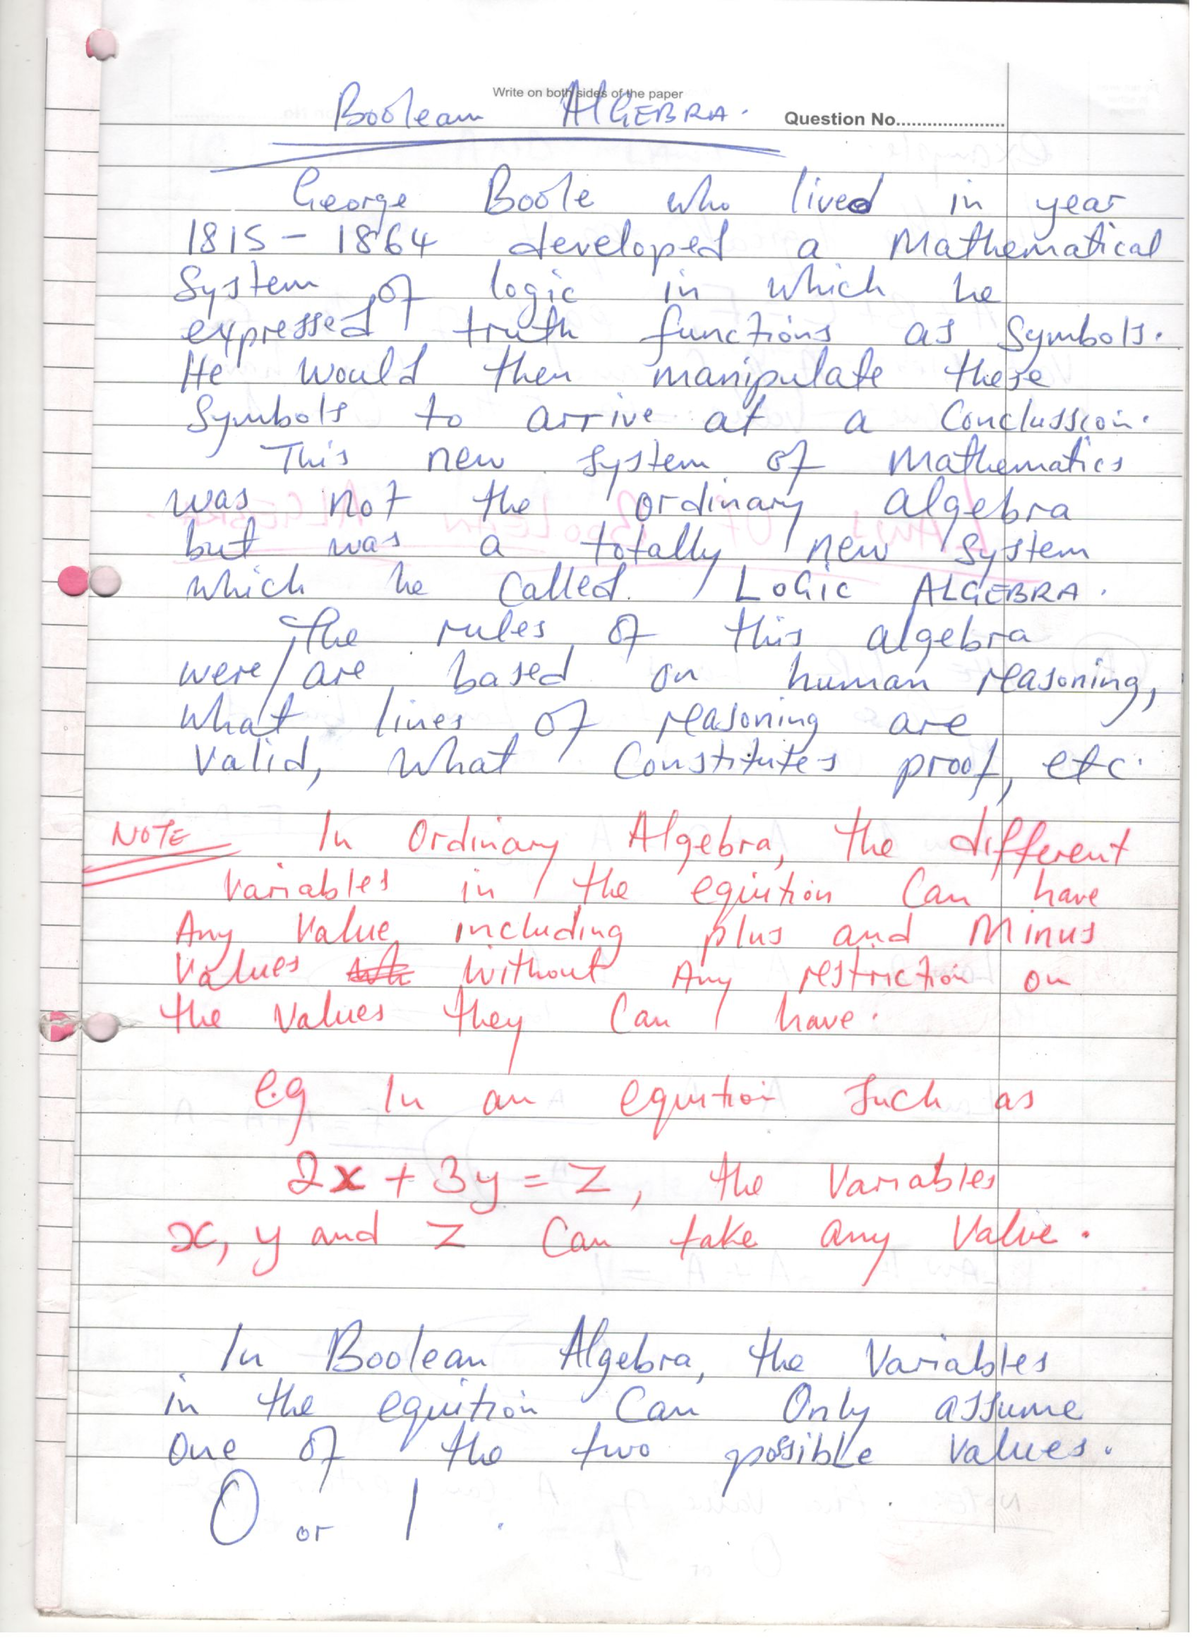 Write on both sides of the paper
Boolean ALGEBRA.
Question No......................
George Boole who lived in year
1815 - 1864 developed a Mathematical
System of logic in which he
expressed truth functions as symbols.
He would then manipulate these
Symbols to arrive at a Conclussion.
This new system of Mathematics
was not the ordinary algebra
but was a totally new system
which he called. LOGIC ALGEBRA.
The rules of this algebra
were/are based on human reasoning,
what lines of reasoning are
valid, what Constitutes proof, etc.
NOTE In Ordinary Algebra, the different
Variables in the equition Can have
Any Value including plus and Minus
Values without Any restriction on
the Values they Can have.
e.g In an equition such as
2x + 3y = Z, the Variables
x, y and Z Can take any Value.
In Boolean Algebra, the Variables
in the equition Can Only assume
one of the two possible Values.
0 or 1.